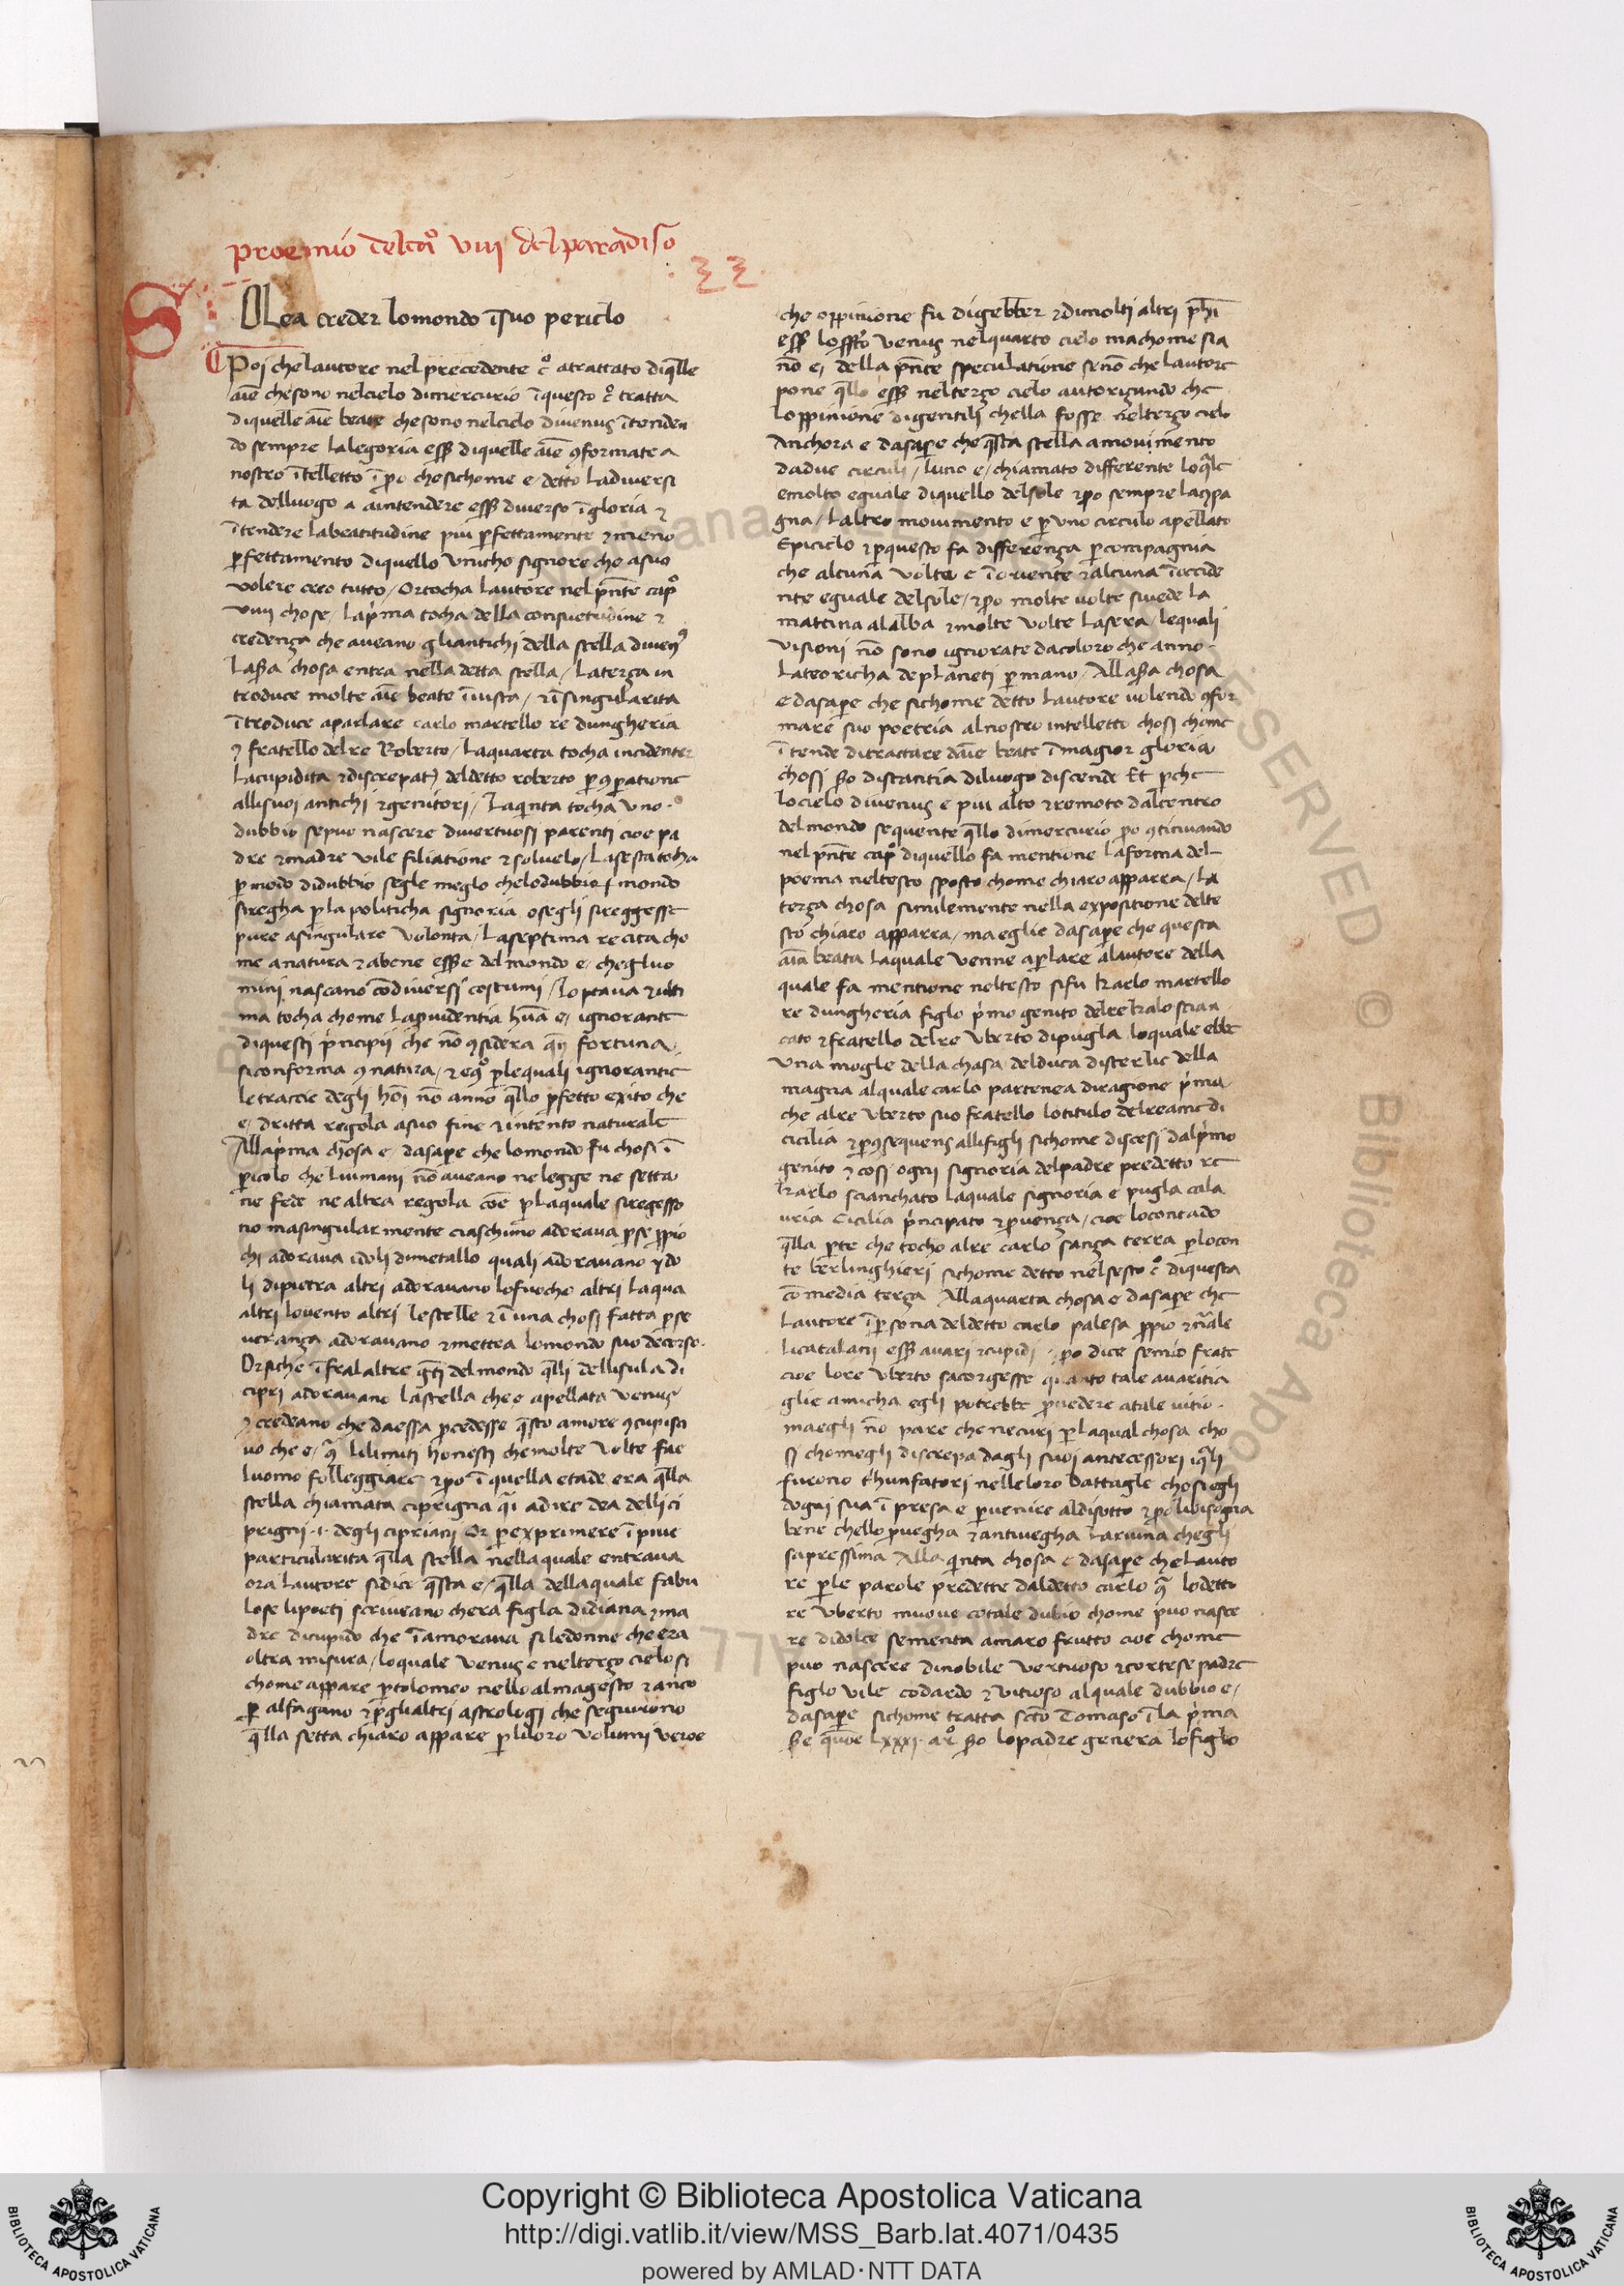 proemio delcaº viii del paradiso
SOLea creder lomondo ĩsuo periclo
Poi chelautore nel precedente cº atrattato diq̃lle
aĩe chesono nelcielo dimercurio ĩquesto cº tratta
diquelle aĩe beate chesono nelcielo divenus ĩtenden
do sempre lalegoria ess̃ diquelle aĩe ꝯformate a
nostro ĩtelletto ĩp̱o chesichome e detto ladiversi
ta delluogo a aintendere ess̃ diverso ĩgloria ⁊
ĩtendere labeatitudine piu p̱fettamente ⁊meno
p̱fettamento diquello unicho signore che asuo
volere creo tutto / Ortocha lautore nel p̃nte capº
viii chose / lap̍ma tocha della consuetudine ⁊
credenza che aveano gliantichi della stella diven⁹
chosa entra nella detta stella / laterza in
troduce molte aĩe beate ĩvista / ⁊ĩsingularita
ĩtroduce aparlare carlo martello re dungheria
ꝯ fratello delre Roberto / laquarta tocha incidenter
lacupidita ⁊discrepat̃ deldetto roberto p̱ ꝯp̱atione
allisuoi antichi ⁊genitori / laq̍nta tocha uno
dubbio sepuo nascere divertuosi parenti cioe pa
dre ⁊madre vile filiatione ⁊solvelo / lasesta tocha
p̱ modo didubbio segle meglo chelodubbio mondo
siregha p̱la politicha signoria osegli sireggesse
pure asingulare volonta / laseptima recita cho
me anatura ⁊abene ess̃e delmondo e / chegluo
mini nascano cõdiversi costumi / loptava ⁊ulti
ma tocha chome lap̱videntia hũa e / ignorante
diquesti p̍ncipii che nõ ꝯsidera fortuna
siconforma ꝯ natura / p̱lequali ignorantie
letraccie degli hõi nõ anno q̃llo p̱fetto exito che
e / dritta regola asuo fine ⁊intento naturale
Allap̍ma chosa e / dasap̱e che lomondo fu chosi ĩ
p̱icolo che luimani nõ aveano nelegge ne setta
ne fede ne altra regola cõe p̱laquale siregesso
no masingularmente ciaschuno adorava p̱se p̱pio
chi adorava idoli dimetallo quali adoravano ydo
li dipietra altri adoravano lofuocho altri laqua
altri lovento altri lestelle ⁊ĩ una chosi fatta p̱se
veranza adoravano ⁊mettea lomondo suo decorso
Orsiche ĩfralaltre gẽti delmondo q̃lli dellisula di
cipri adoravano lastella che e apellata venus
⁊ credeano che daessa p̱cedesse q̃sto amore ꝯcupisci
vo che e / lilimiti honesti chemolte volte fae
luomo folleggiare ⁊p̱o ĩ quella etade era q̃lla
stella chiamata ciprigna q̃i adire dea dellici
prigni .i. degli cipriani Or p̱ exprimere ĩ piue
particularita q̃lla stella nellaquale entrava
ora lautore sidice q̃sta e / q̃lla dellaquale fabu
lose lipoeti scriveano chera figla didiana ⁊ma
dre dicupido che ĩamorava siledonne che era
oltra misura / loquale venus e nelterzo cielo si
chome appare p̱tolomeo nello almagesto ⁊anco
p̱ alfagano ⁊p̱glialtri astrologi che seguirono
q̃lla setta chiaro appare p̱liloro volumi veroe
che oppinione fu digebber ⁊dimolti altri ph̃i
ess̃ venus nelquarto cielo machome sia
nõ e / della p̃nte speculatione senõ che lautore
pone q̃llo ess̃ nelterzo cielo autorizando che
loppinione digentili chella fosse nelterzo cielo
Anchora e dasap̱e che q̃sta stella amovimento
dadue circuli / luno e / chiamato differente loq̃le
emolto eguale diquello delsole ⁊p̱o sempre laꝯpa
gna / laltro movimento e p̱ uno circulo apellato
Epiciclo ⁊p̱questo fa differenza p̱ compagnia
che alcuna volta e ĩoriente ⁊alcuna ĩoccide
nte eguale delsole / ⁊p̱o molte volte sivede la
mattina alalba ⁊molte volte lasera / lequali
visioni nõ sono ignorate dacoloro che anno
lateoricha deplaneti p̱ mano / chosa
e dasap̱e che sichome detto lautore volendo ꝯfor
mare suo poetria alnostro intelletto chosi chome
ĩtende ditractare daĩe beate ĩmagior gloria
chosi distantia diluogo discende Et p̱che
locielo divenus e piu alto ⁊remoto dalcentro
delmondo sequente q̃llo dimercurio p̱o ꝯtinuando
nel p̃nte capº diquello fa mentione laforma del
poema neltesto sposto chome chiaro apparra / la
terza chosa similemente nella expositione delte
sto chiaro apparra / ma eglie dasap̱e che questa
aĩa beata laquale venne ap̱lare alautore della
quale fa mentione neltesto sifu karlo martello
re dungheria figlo p̍mo genito delre kalo scian
cato ⁊fratello delre uberto dipugla loquale ebbe
una mogle della chasa delduca disterlic della
magna alquale carlo partenea diragione p̍ma
che alre uberto suo fratello lotitulo delreame di
cicilia ⁊p̱ ꝯsequens allifigli sichome discesi dalp̍mo
genito ⁊ cosi ogni signoria delpadre predetto re
karlo scianchato laquale signoria e pugla cala
uria cicilia p̍ncipato ⁊p̱venza / cioe locontado
q̃lla p̱te che tocho alre carlo sanza terra p̱locon
te berlinghieri sichome detto nelsesto cº diquesta
cõmedia terza Allaquarta chosa e dasap̱e che
lautore ĩp̱sona deldetto carlo palesa p̱pio
licatalani ess̃ avari ⁊cupidi p̱o dice semio frate
cioe lore uberto sacorgesse quanto tale avaritia
glie anicha egli potrebbe p̱vedere atale vitio
maegli nõ pare chenecuri p̱laqual chosa cho
si chomegli discrepa dagli suoi antecessori iq̃li
furono t̍hunfatori nelleloro battagle chosi egli
dogni sua ĩpresa e p̱venire aldisotto ⁊p̱o libisogna
bene chello p̱vegha ⁊antivegha laruina chegli
sapressima Alla q̍nta chosa e dasap̱e che lauto
re p̱le parole predette daldetto carlo lodetto
re uberto muove cotale dubio chome puo nasce
re didolce sementa amaro frutto cioe chome
puo nascere dinobile vertuoso ⁊cortese padre
figlo vile codardo ⁊vitioso alquale dubbio e /
dasap̱e sichome tratta scõ Tomaso ĩla p̍ma
lxxxi arº lopadre genera lofiglo
Copyright © Biblioteca Apostolica Vaticana
http://digi.vatlib.it/view/MSS_Barb.lat.4071/0435
powered by AMLAD·NTT DATA
BIBLIOTECA APOSTOLICA VATICANA
BIBLIOTECA APOSTOLICA VATICANA